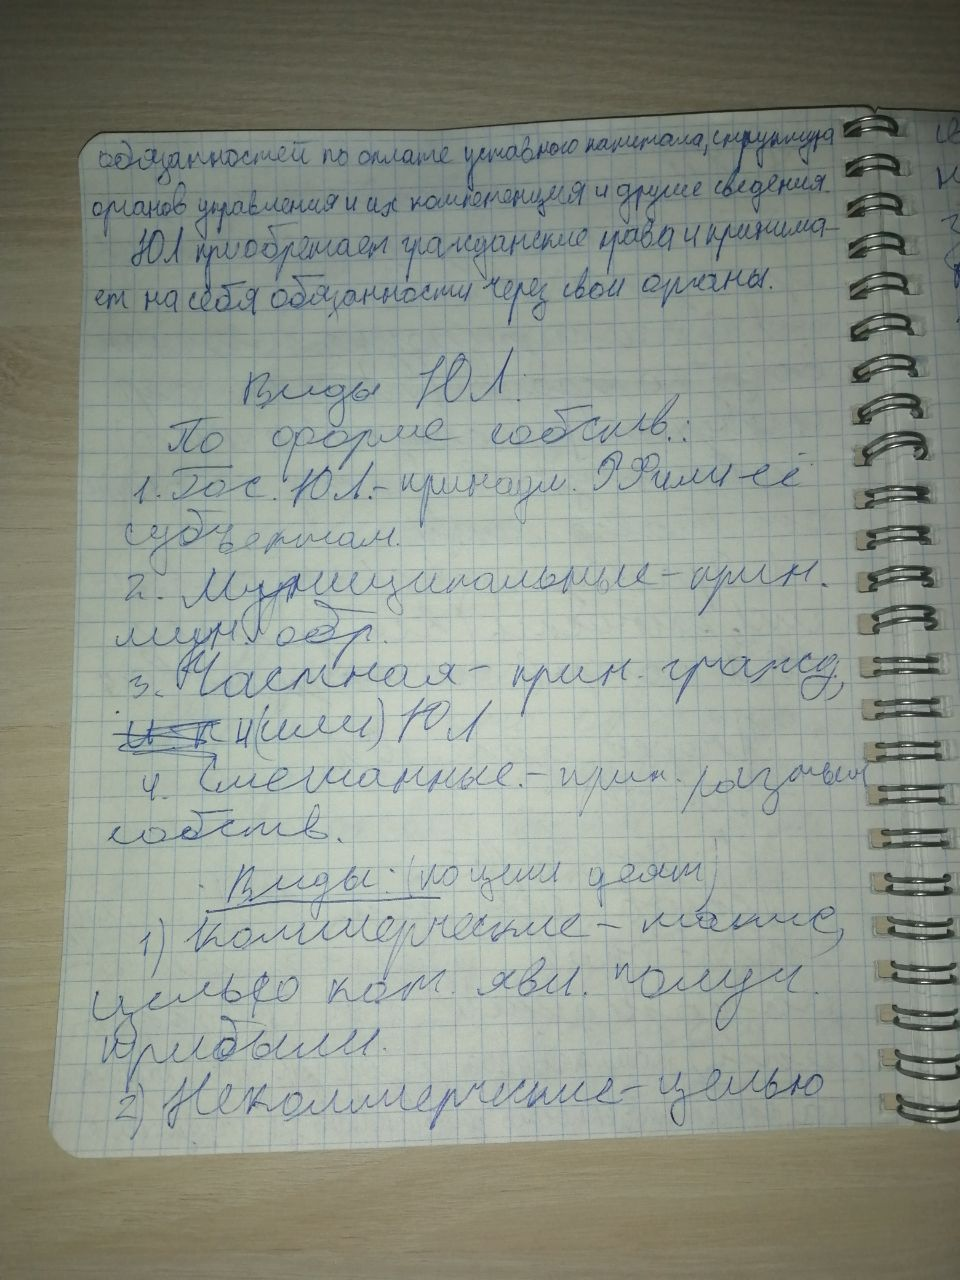 обязанностей по оплате уставного капитала, структура
органов управления и их компетенция и другие сведения.
ЮЛ приобретает гражданские права и принима-
ет на себя обязанности через свои органы.
Виды ЮЛ:
По форме собств.:
1. Гос. ЮЛ. - принадл. РФ или её
субъектам.
2. Муниципальные - прин.
мун. обр.
3. Частная - прин. гражд,
и (или) ЮЛ
4. Смешанные. - прин. разным
собств.
Виды: (по цели деят)
1) Коммерческие - такие,
целью кот. явл. получ.
прибыли.
2) Некоммерческие - целью